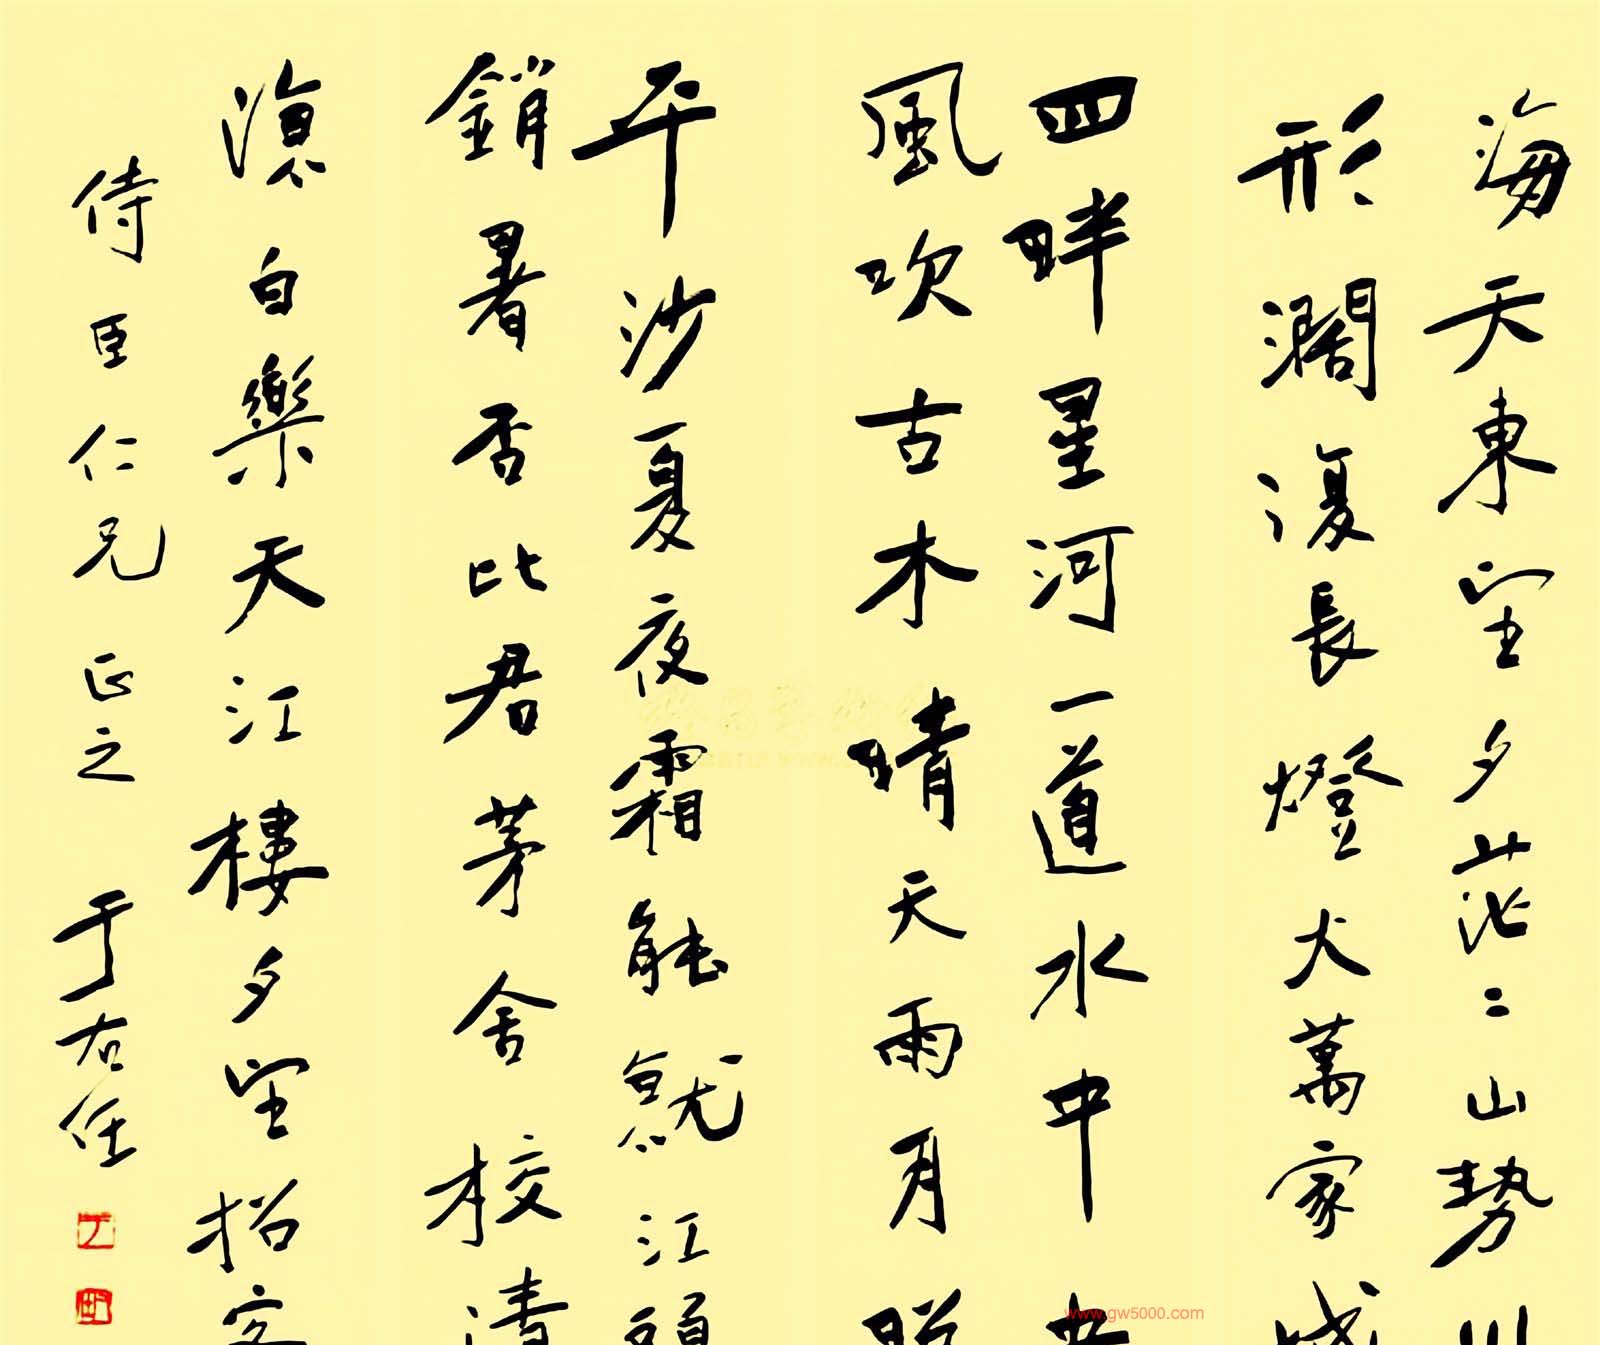 海天東望夕茫〻山勢川
形濶復長燈火萬家城
四畔星河一道水中央
風吹古木晴天雨月照
平沙夏夜霜能就江頭
銷暑否比君茅舍校清
涼白樂天江樓夕望招客
侍臣仁兄正之
于右任
www.gw5000.com